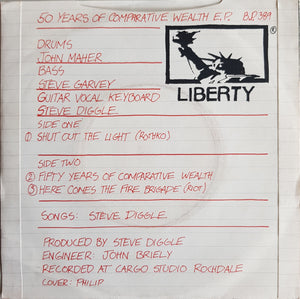 50 YEARS OF COMPARATIVE WEALTH E.P. BP 389
DRUMS
JOHN MAHER
BASS
STEVE GARVEY
GUITAR VOCAL KEYBOARD
STEVE DIGGLE
LIBERTY
®
SIDE ONE
① SHUT OUT THE LIGHT (ROTHKO)
SIDE TWO
② FIFTY YEARS OF COMPARATIVE WEALTH
③ HERE COMES THE FIRE BRIGADE (RIOT)
SONGS: STEVE DIGGLE
PRODUCED BY STEVE DIGGLE
ENGINEER: JOHN BRIELY
RECORDED AT CARGO STUDIO ROCHDALE
COVER: PHILIP